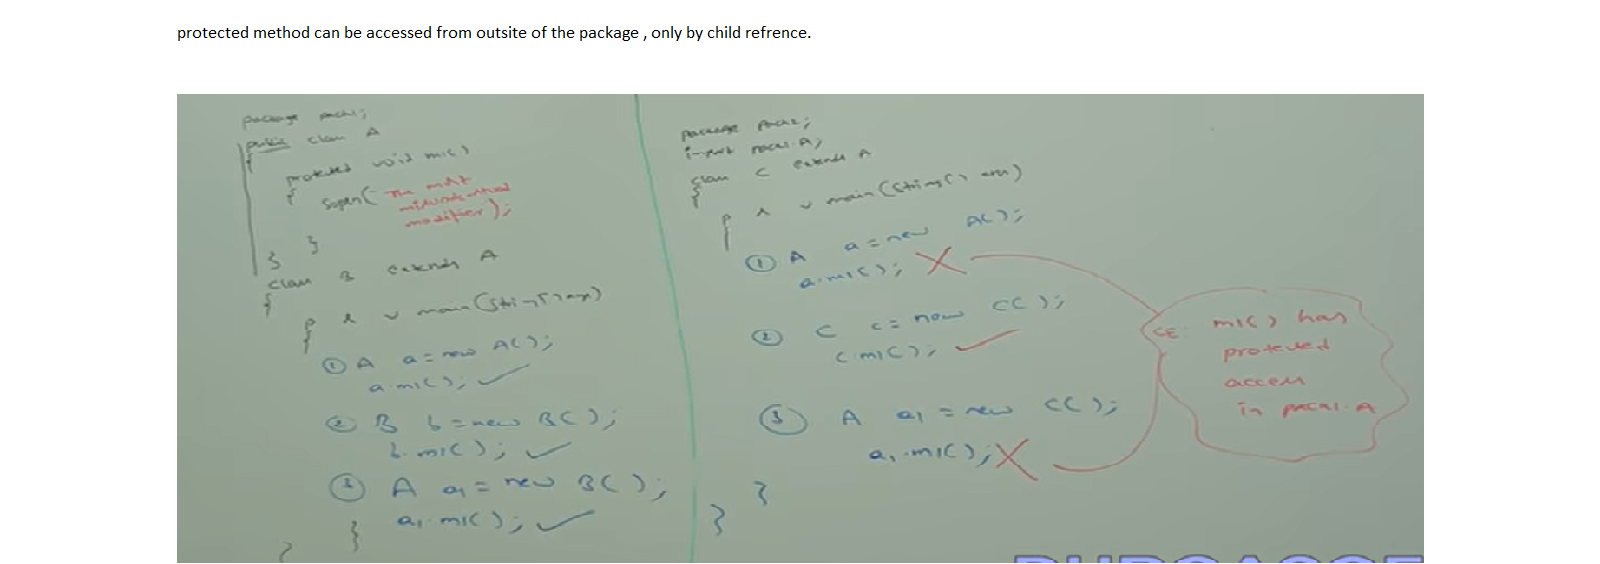 protected method can be accessed from outsite of the package , only by child refrence.
package pack1;
public class A
{
protected void m1()
{
Sopln("The most
misunderstood
modifier");
}
}
class B extends A
{
p s v main(String[] args)
{
① A a = new A();
a.m1(); ✓
② B b = new B();
b.m1(); ✓
③ A a1 = new B();
a1.m1(); ✓
}
}
package pack2;
import pack1.A;
class C extends A
{
p s v main(String[] args)
{
① A a = new A();
a.m1(); X
② C c = new C();
c.m1(); ✓
③ A a1 = new C();
a1.m1(); X
}
}
CE: m1() has
protected
access
in pack1.A